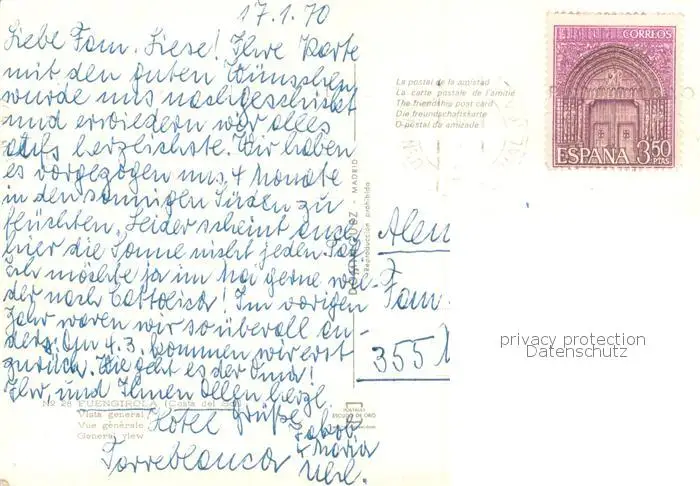 17.1.70
Liebe Fam. Liese! Ihre Karte
mit den guten Wünschen
wurde uns nachgeschickt
und erwiedern wir alles
aufs herzlichste. Wir haben
es vorgezogen uns 4 Monate
in den sonnigen Süden zu
flüchten. Leider scheint auch
hier die Sonne nicht jeden Tag
Ich möchte ja im Mai gerne wie-
der nach Cattolica! Im vorigen
Jahr waren wir so überall an-
ders. Am 4.3. kommen wir erst
zurück. Wie geht es der Oma!
Ihr und Ihnen Allen herzl.
Grüße
Jakob
Maria
Uhl.
Hotel
Torreblanca
No 28 FUENGIROLA (Costa del Sol)
Vista general
Vue générale
General view
POSTALES
ESCUDO DE ORO
DOMINGUEZ - MADRID
Reproducción prohibida
La postal de la amistad
La carte postale de l'amitié
The friendship post card
Die freundschaftskarte
O postal da amizade
CORREOS
ESPAÑA 3,50
PTAS
Alem
Fam.
355
privacy protection
Datenschutz